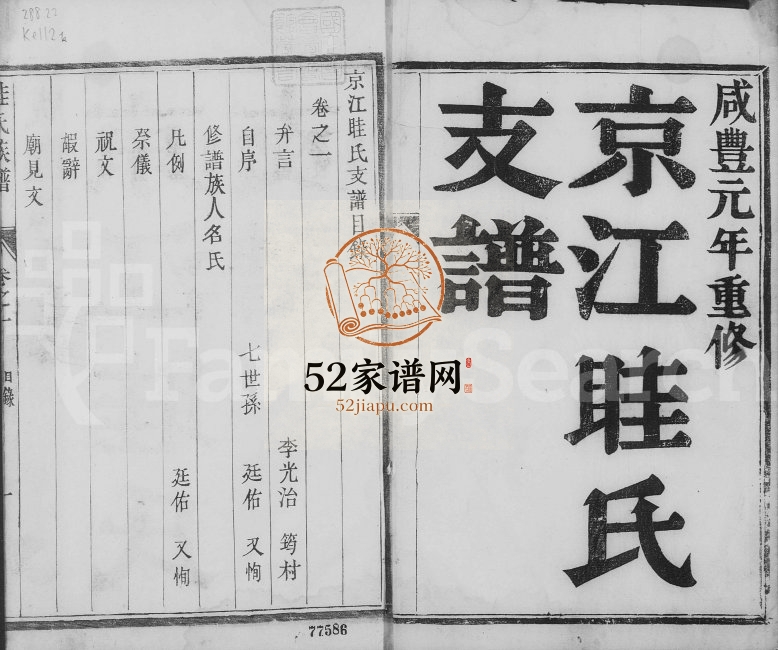 咸豐元年重修
京江眭氏
支譜
京江眭氏支譜目錄
卷之一
弁言 李光治 筠村
自序 七世孫 廷佑 又恂
修譜族人名氏
凡例 廷佑 又恂
祭儀
祝文
嘏辭
廟見文
眭氏族譜 卷之一 目錄 一
288.22
77586
52家谱网
52jiapu.com
FamilySearch